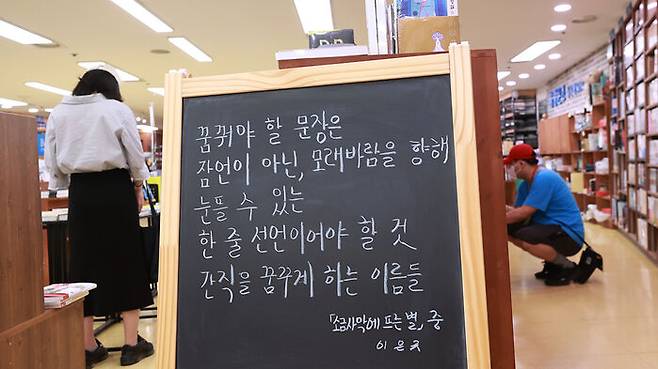 꿈꿔야 할 문장은
잠언이 아닌, 모래바람을 향해
눈뜰 수 있는
한 줄 선언이어야 할 것
간직을 꿈꾸게 하는 이름들
「소금사막에 뜨는 별」 중